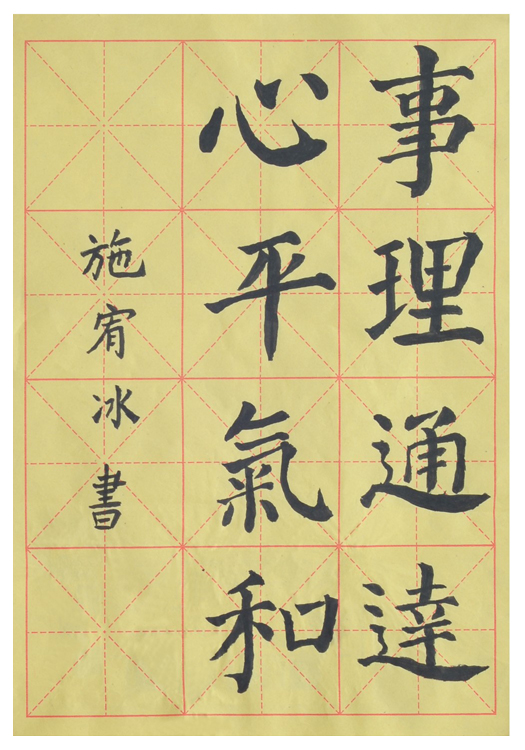 事理通達
心平氣和
施宥冰書